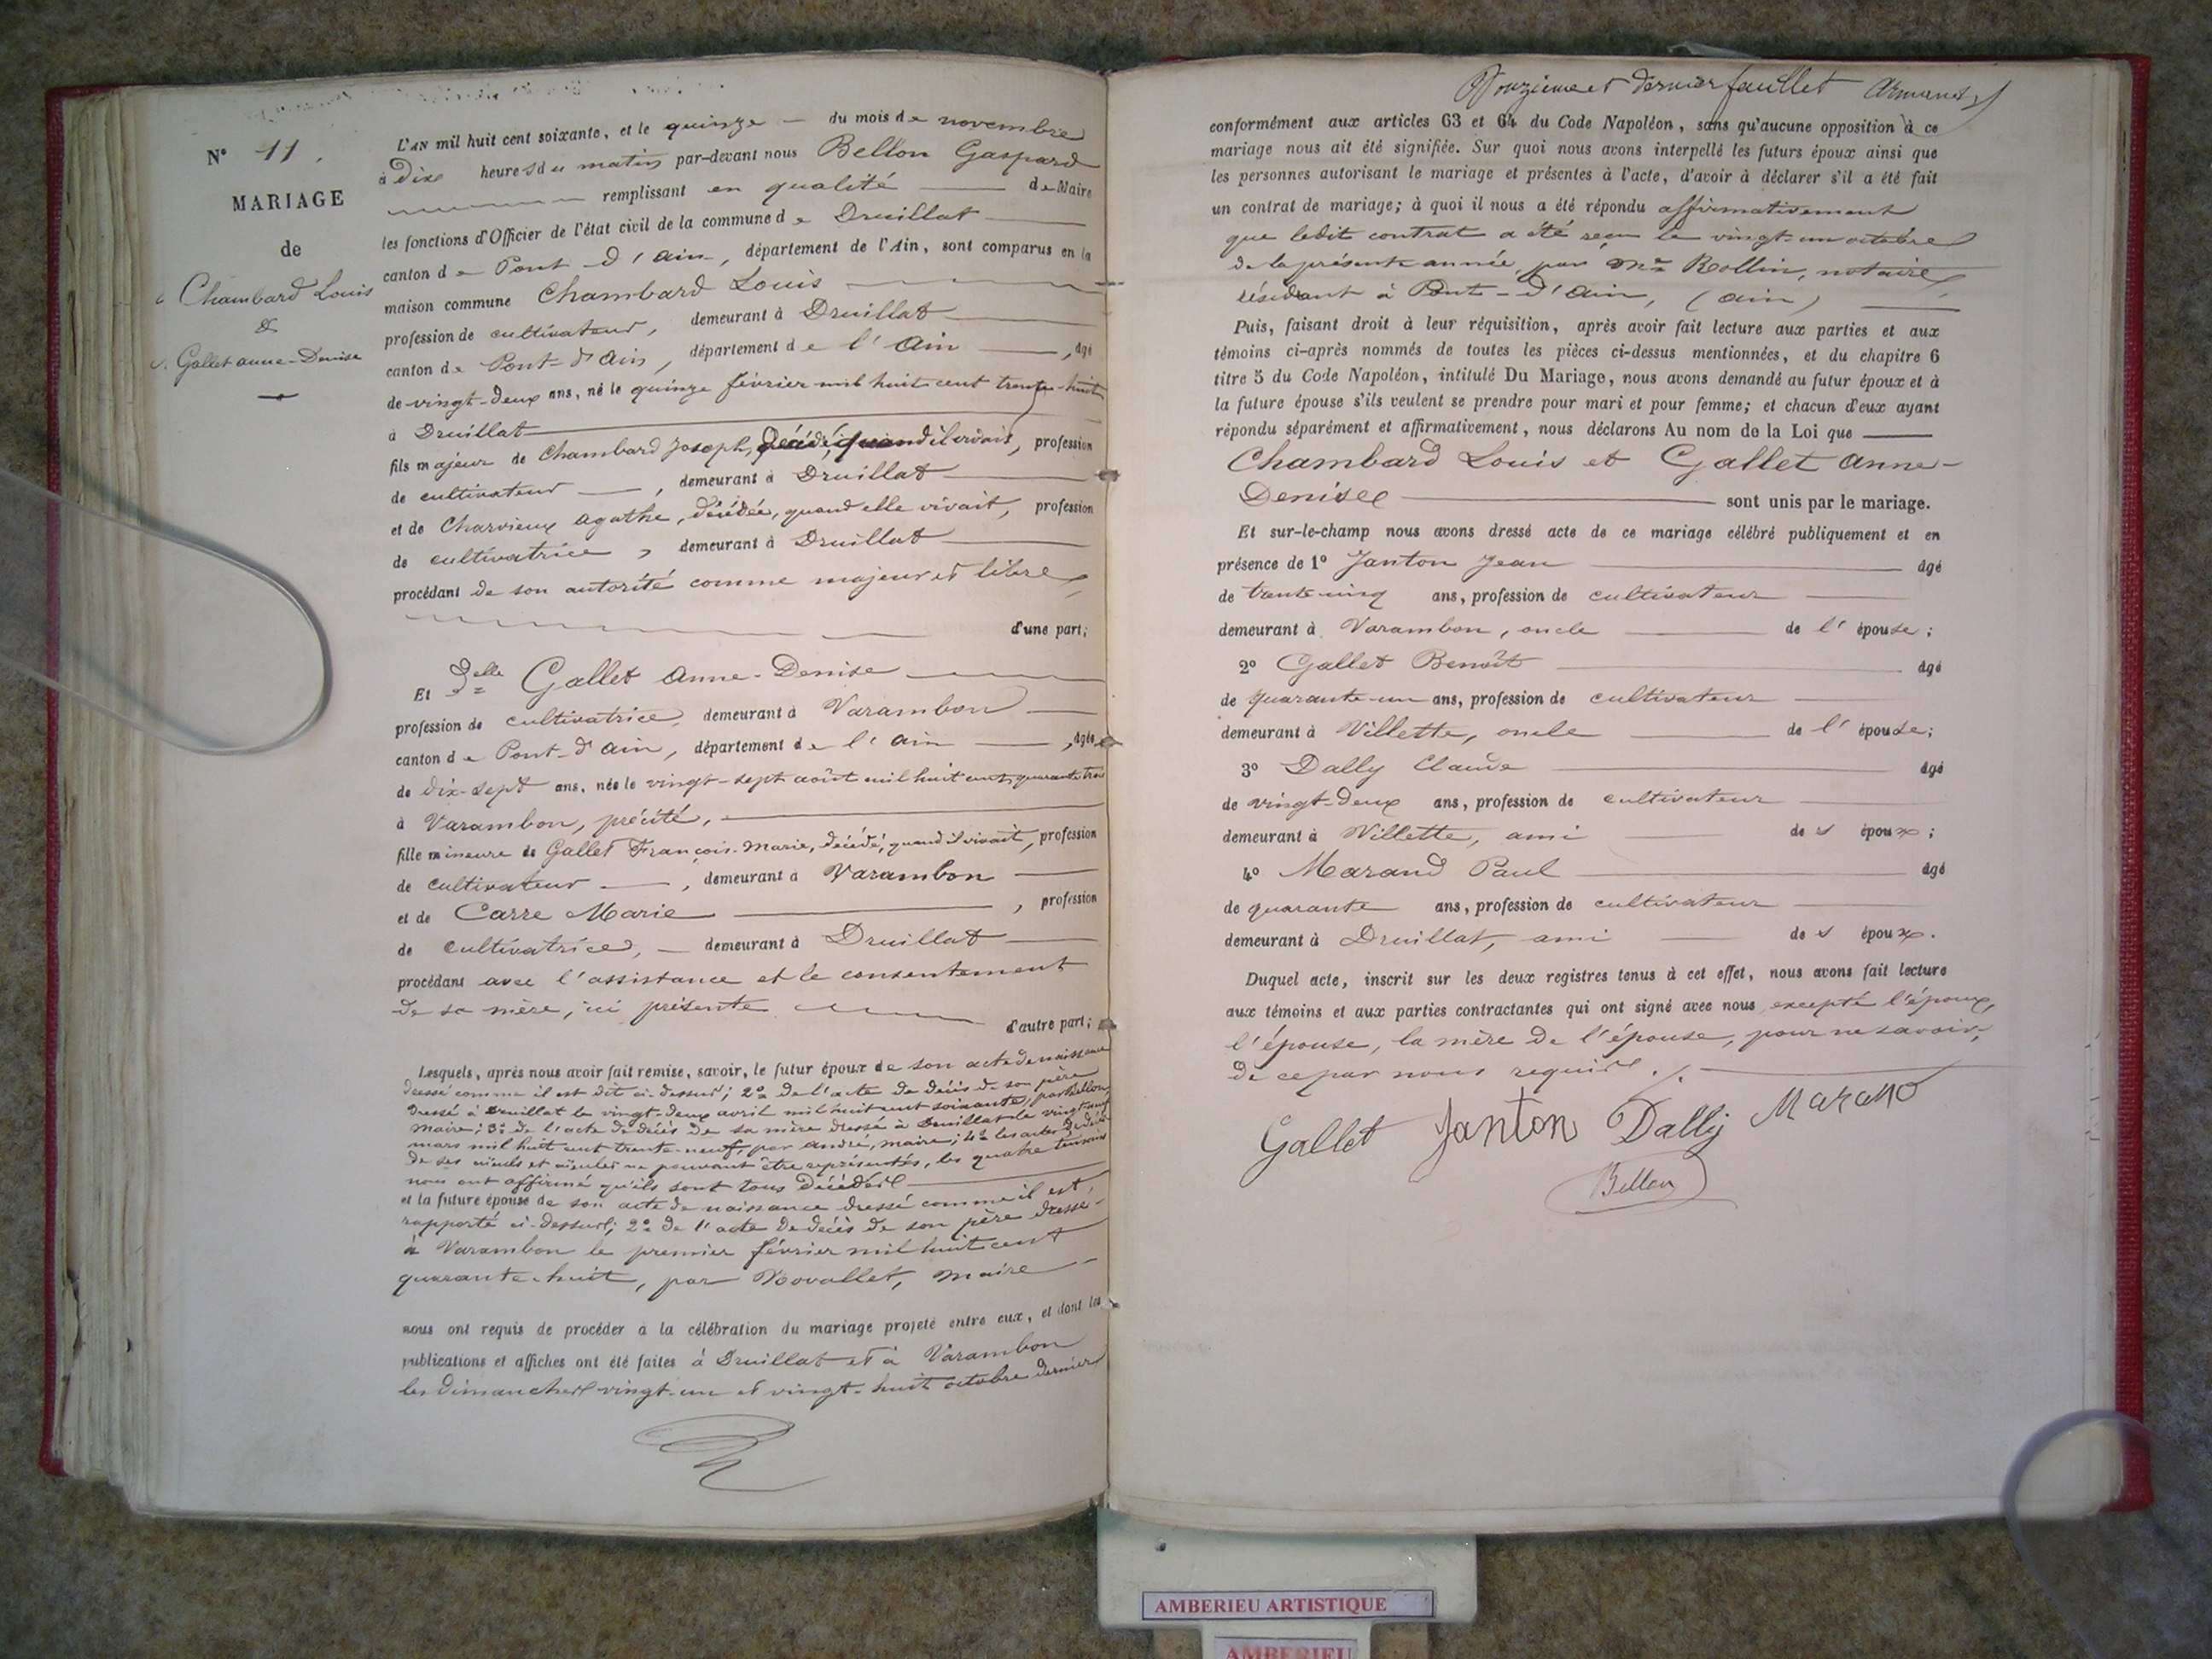 N° 11.
MARIAGE
de
Chambard Louis
&
Gallet anne-Denise
L'AN mil huit cent soixante, et le quinze du mois de novembre
à Dix heures du matin par-devant nous Bellon Gaspard
remplissant en qualité de Maire
les fonctions d'Officier de l'état civil de la commune de Druillat
canton de Pont-d'ain, département de l'Ain, sont comparus en la
maison commune Chambard Louis
profession de cultivateur, demeurant à Druillat
canton de Pont-d'ain, département de l'ain, âgé
de vingt-deux ans, né le quinze février mil huit cent trente-huit
à Druillat
fils majeur de Chambard Joseph, décédé, quand il vivait, profession
de cultivateur, demeurant à Druillat
et de Charvieux agathe, décédée, quand elle vivait, profession
de cultivatrice, demeurant à Druillat
procédant de son autorité comme majeur et libre
d'une part;
Et Delle Gallet Anne-Denise
profession de cultivatrice demeurant à Varambon
canton de Pont-d'ain, département de l'ain, âgée
de dix-sept ans, née le vingt-sept août mil huit cent quarante trois
à Varambon, précité,
fille mineure de Gallet François-Marie, décédé, quand il vivait, profession
de cultivateur, demeurant à Varambon
et de Carre Marie, profession
de cultivatrice, demeurant à Druillat
procédant avec l'assistance et le consentement
de sa mère, ici présente
d'autre part;
Lesquels, après nous avoir fait remise, savoir, le futur époux de son acte de naissance
dressé comme il est dit ci-dessus; 2° de l'acte de décès de son père
dressé à Druillat le vingt-deux avril mil huit cent soixante, par Bellon
maire; 3° de l'acte de décès de sa mère dressé à Druillat le vingt-neuf
mars mil huit cent trente-neuf, par andré, maire; 4° les actes de décès
de ses aïeuls et aïeules ne pouvant être représentés, les quatre temoins
nous ont affirmé qu'ils sont tous décédés
et la future épouse de son acte de naissance dressé comme il est
rapporté ci-dessus; 2° de l'acte de décès de son père dressé
à Varambon le premier février mil huit cent
quarante-huit, par Novallet, maire
nous ont requis de procéder à la célébration du mariage projeté entre eux, et dont les
publications et affiches ont été faites à Druillat et à Varambon
les dimanches vingt-un et vingt-huit octobre dernier
Douzième et dernier feuillet
conformément aux articles 63 et 64 du Code Napoléon, sans qu'aucune opposition à ce
mariage nous ait été signifiée. Sur quoi nous avons interpellé les futurs époux ainsi que
les personnes autorisant le mariage et présentes à l'acte, d'avoir à déclarer s'il a été fait
un contrat de mariage; à quoi il nous a été répondu affirmativement
que ledit contrat a été reçu le vingt-un octobre
de la présente année, par Me Rollin, notaire
résidant à Pont-d'ain, (ain)
Puis, faisant droit à leur réquisition, après avoir fait lecture aux parties et aux
témoins ci-après nommés de toutes les pièces ci-dessus mentionnées, et du chapitre 6
titre 5 du Code Napoléon, intitulé Du Mariage, nous avons demandé au futur époux et à
la future épouse s'ils veulent se prendre pour mari et pour femme; et chacun d'eux ayant
répondu séparément et affirmativement, nous déclarons Au nom de la Loi que
Chambard Louis et Gallet anne-
Denise sont unis par le mariage.
Et sur-le-champ nous avons dressé acte de ce mariage célébré publiquement et en
présence de 1° Janton Jean âgé
de trente-cinq ans, profession de cultivateur
demeurant à Varambon, oncle de l'épouse;
2° Gallet Benoît âgé
de quarante-un ans, profession de cultivateur
demeurant à Villette, oncle de l'épouse;
3° Dally Claude âgé
de vingt-deux ans, profession de cultivateur
demeurant à Villette, ami des époux;
4° Marand Paul âgé
de quarante ans, profession de cultivateur
demeurant à Druillat, ami des époux.
Duquel acte, inscrit sur les deux registres tenus à cet effet, nous avons fait lecture
aux témoins et aux parties contractantes qui ont signé avec nous excepté l'époux,
l'épouse, la mère de l'épouse, pour ne savoir,
de ce par nous requis.
Gallet Janton Dally Marano
Bellon
AMBERIEU ARTISTIQUE
AMBERIEU